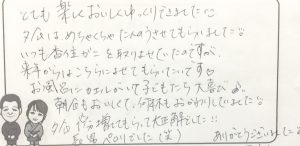 とても楽しくおいしくゆっくりできました♡
夕食はめちゃくちゃたんのうさせてもらいました♡
いつも香住がにを取りよせていたのですが、
来年からはこちらにこさせてもらっていいです
お風呂にカエルがいて子どもたち大喜び♪
朝食もおいしくて、何杯もおかわりしていました♡
夕食 増してもらって大正解でした!!
ペロリでした(笑) ありがとうございました